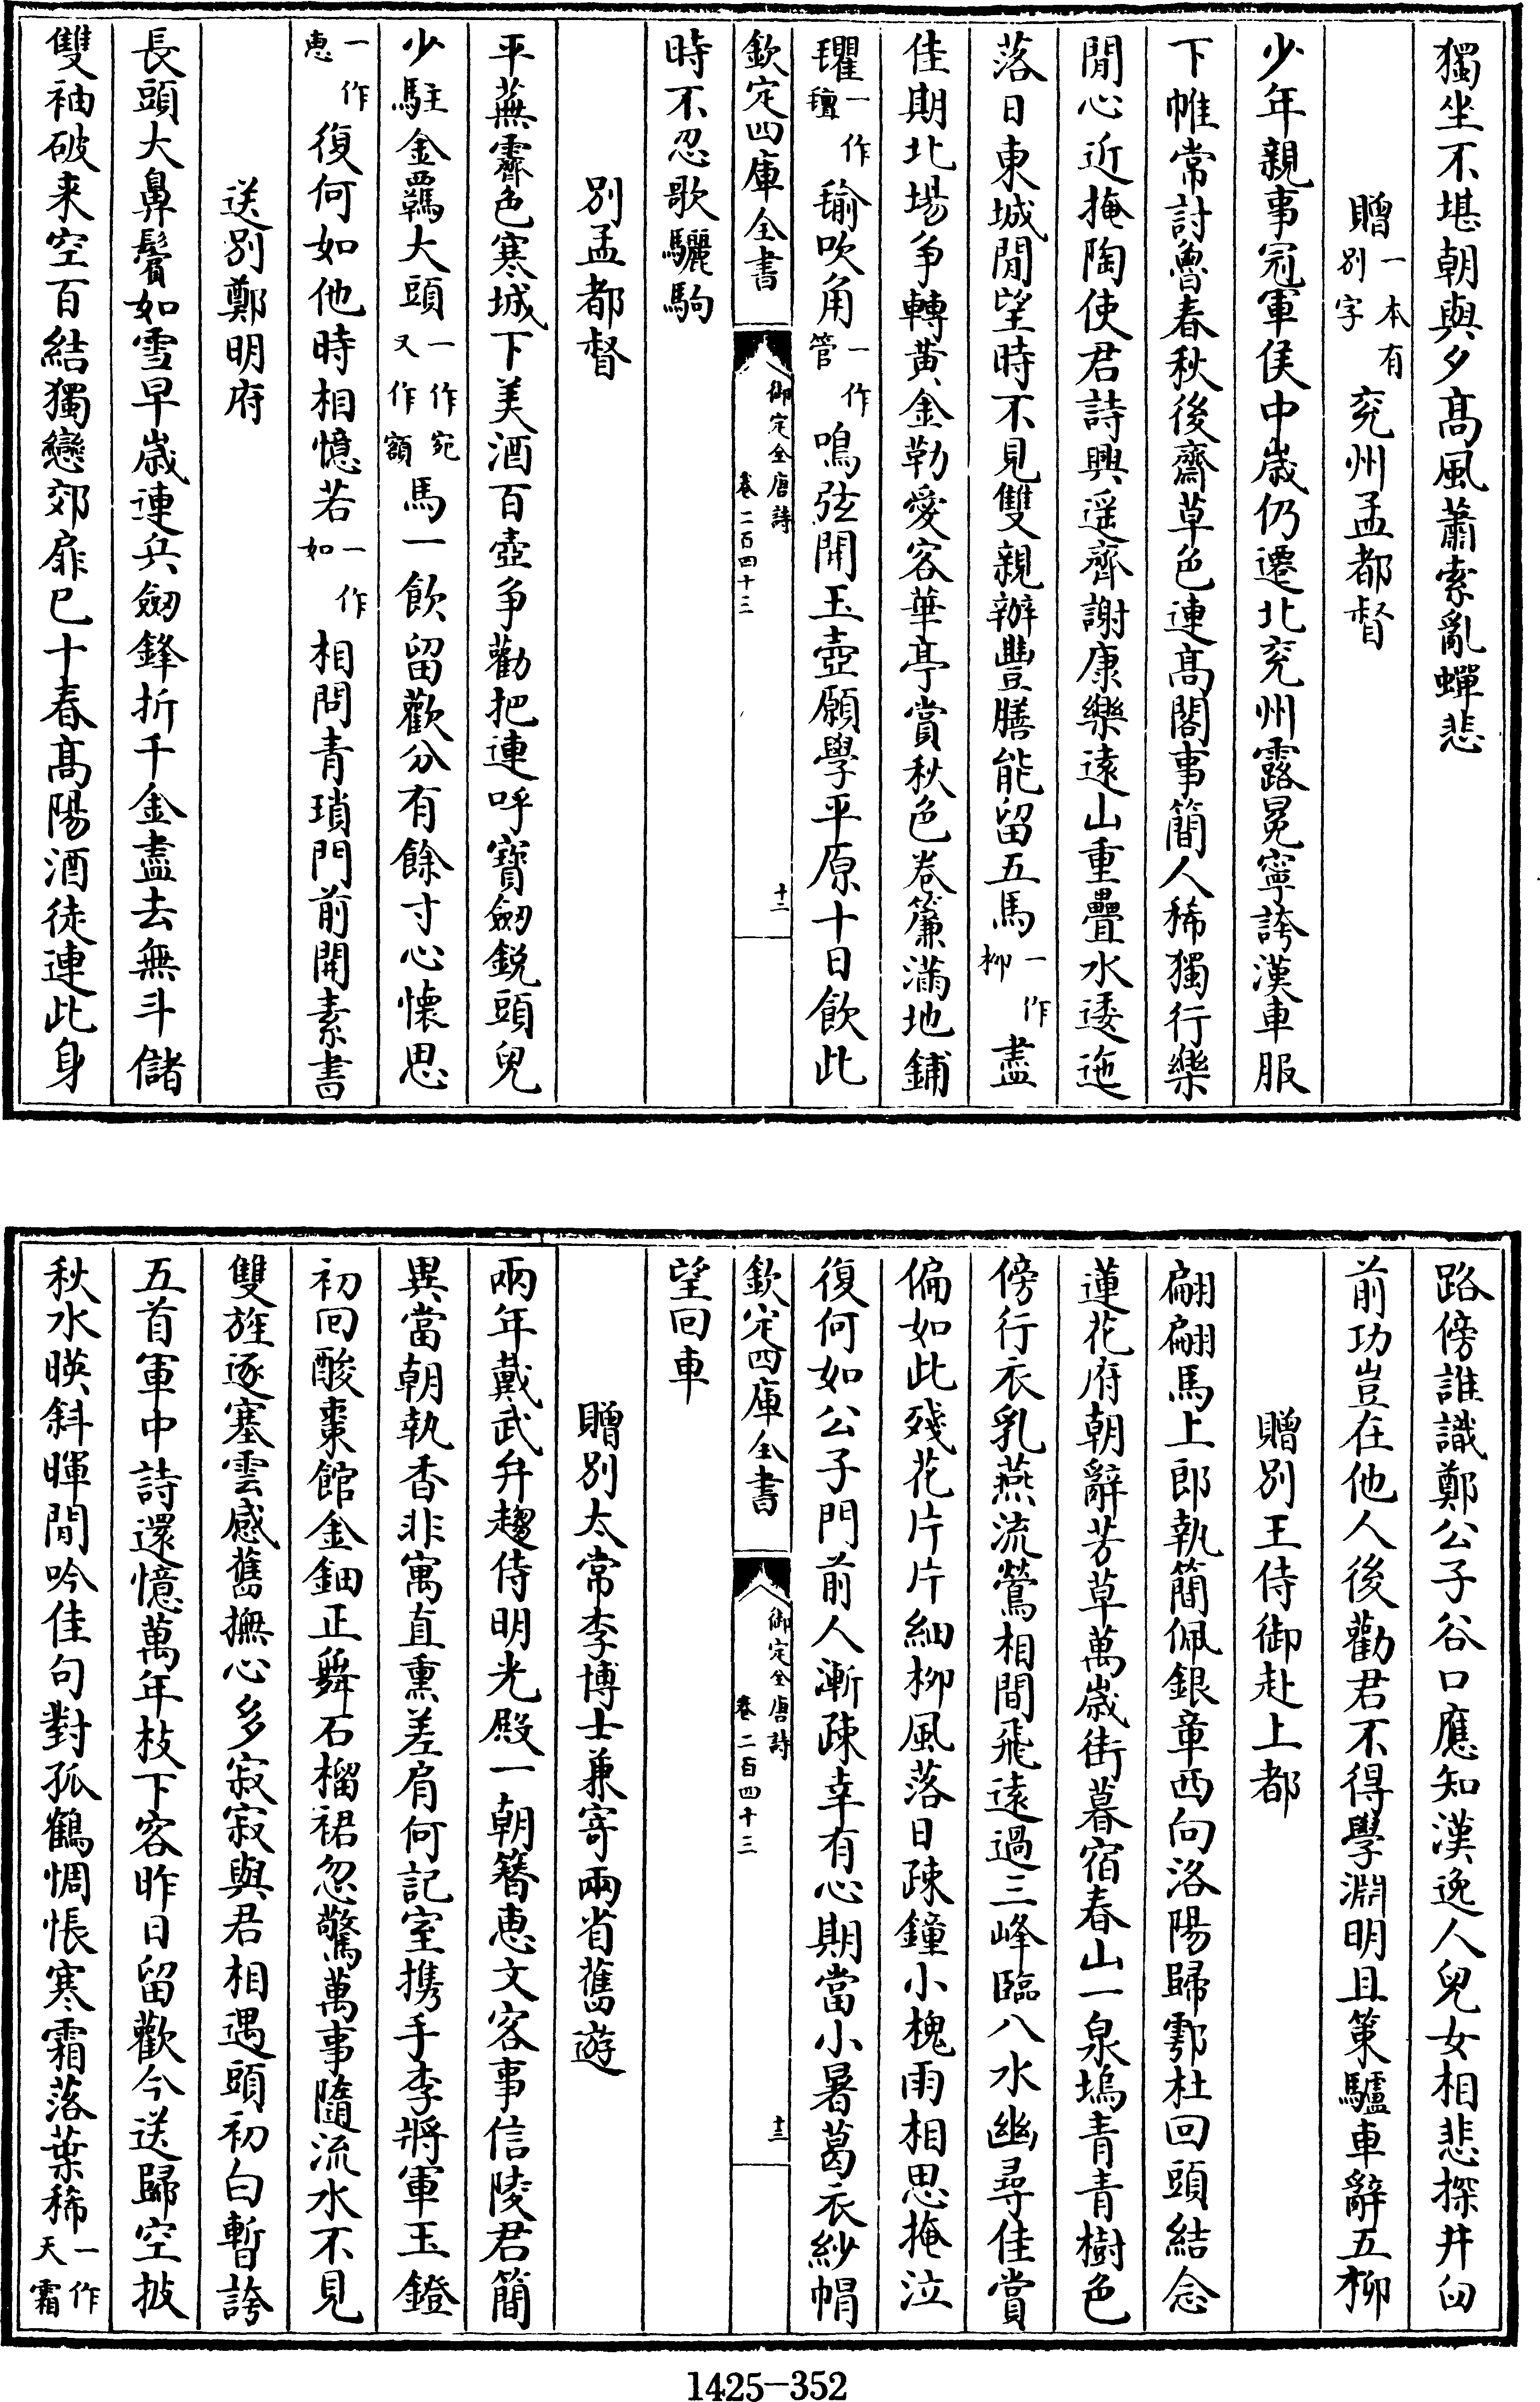 獨坐不堪朝與夕髙風蕭索亂蟬悲
贈一本有别字兖州孟都督
少年親事冠軍侯中嵗仍遷北兖州露冕寧誇漢車服
下帷常討魯春秋後齋草色連髙閣事簡人稀獨行樂
閒心近掩陶使君詩興遥齊謝康樂逺山重疊水逶迤
落日東城閒望時不見雙親辦豐膳能留五馬一作柳盡
佳期北場争轉黄金勒愛客華亭賞秋色卷簾滿地鋪
氍一作㲪毹吹角一作管鳴弦開玉壺願學平原十日飲此
欽定四庫全書
御定全唐詩
卷二百四十三
十二
時不忍歌驪駒
别孟都督
平蕪霽色寒城下美酒百壺争勸把連呼寶劔鋭頭兒
少駐金羈大頭一作宛又作額馬一飲留歡分有餘寸心懐思
一作恵復何如他時相憶若一作如相問青瑣門前開素書
送别鄭明府
長頭大鼻鬢如雪早嵗連兵劔鋒折千金盡去無斗儲
雙袖破来空百結獨戀郊扉已十春髙陽酒徒連此身
路傍誰識鄭公子谷口應知漢逸人兒女相悲探井臼
前功豈在他人後勸君不得學淵明且策驢車辭五柳
贈别王侍御赴上都
翩翩馬上郎執簡佩銀章西向洛陽歸鄠杜回頭結念
蓮花府朝辭芳草萬嵗街暮宿春山一泉塢青青樹色
傍行衣乳燕流鶯相間飛逺過三峰臨八水幽尋佳賞
偏如此殘花片片細柳風落日疎鐘小槐雨相思掩泣
復何如公子門前人漸疎幸有心期當小暑葛衣紗帽
欽定四庫全書
御定全唐詩
卷二百四十三
十三
望回車
贈别太常李博士兼寄兩省舊遊
兩年戴武弁趨侍明光殿一朝簪恵文客事信陵君簡
異當朝執香非寓直熏差肩何記室携手李將軍玉鐙
初回酸棗館金鈿正舞石榴裙忽驚萬事隨流水不見
雙旌逐塞雲感舊撫心多寂寂與君相遇頭初白暫誇
五首軍中詩還憶萬年枝下客昨日留歡今送歸空披
秋水暎斜暉閒吟佳句對孤鶴惆悵寒霜落葉稀一作天霜
1425-352